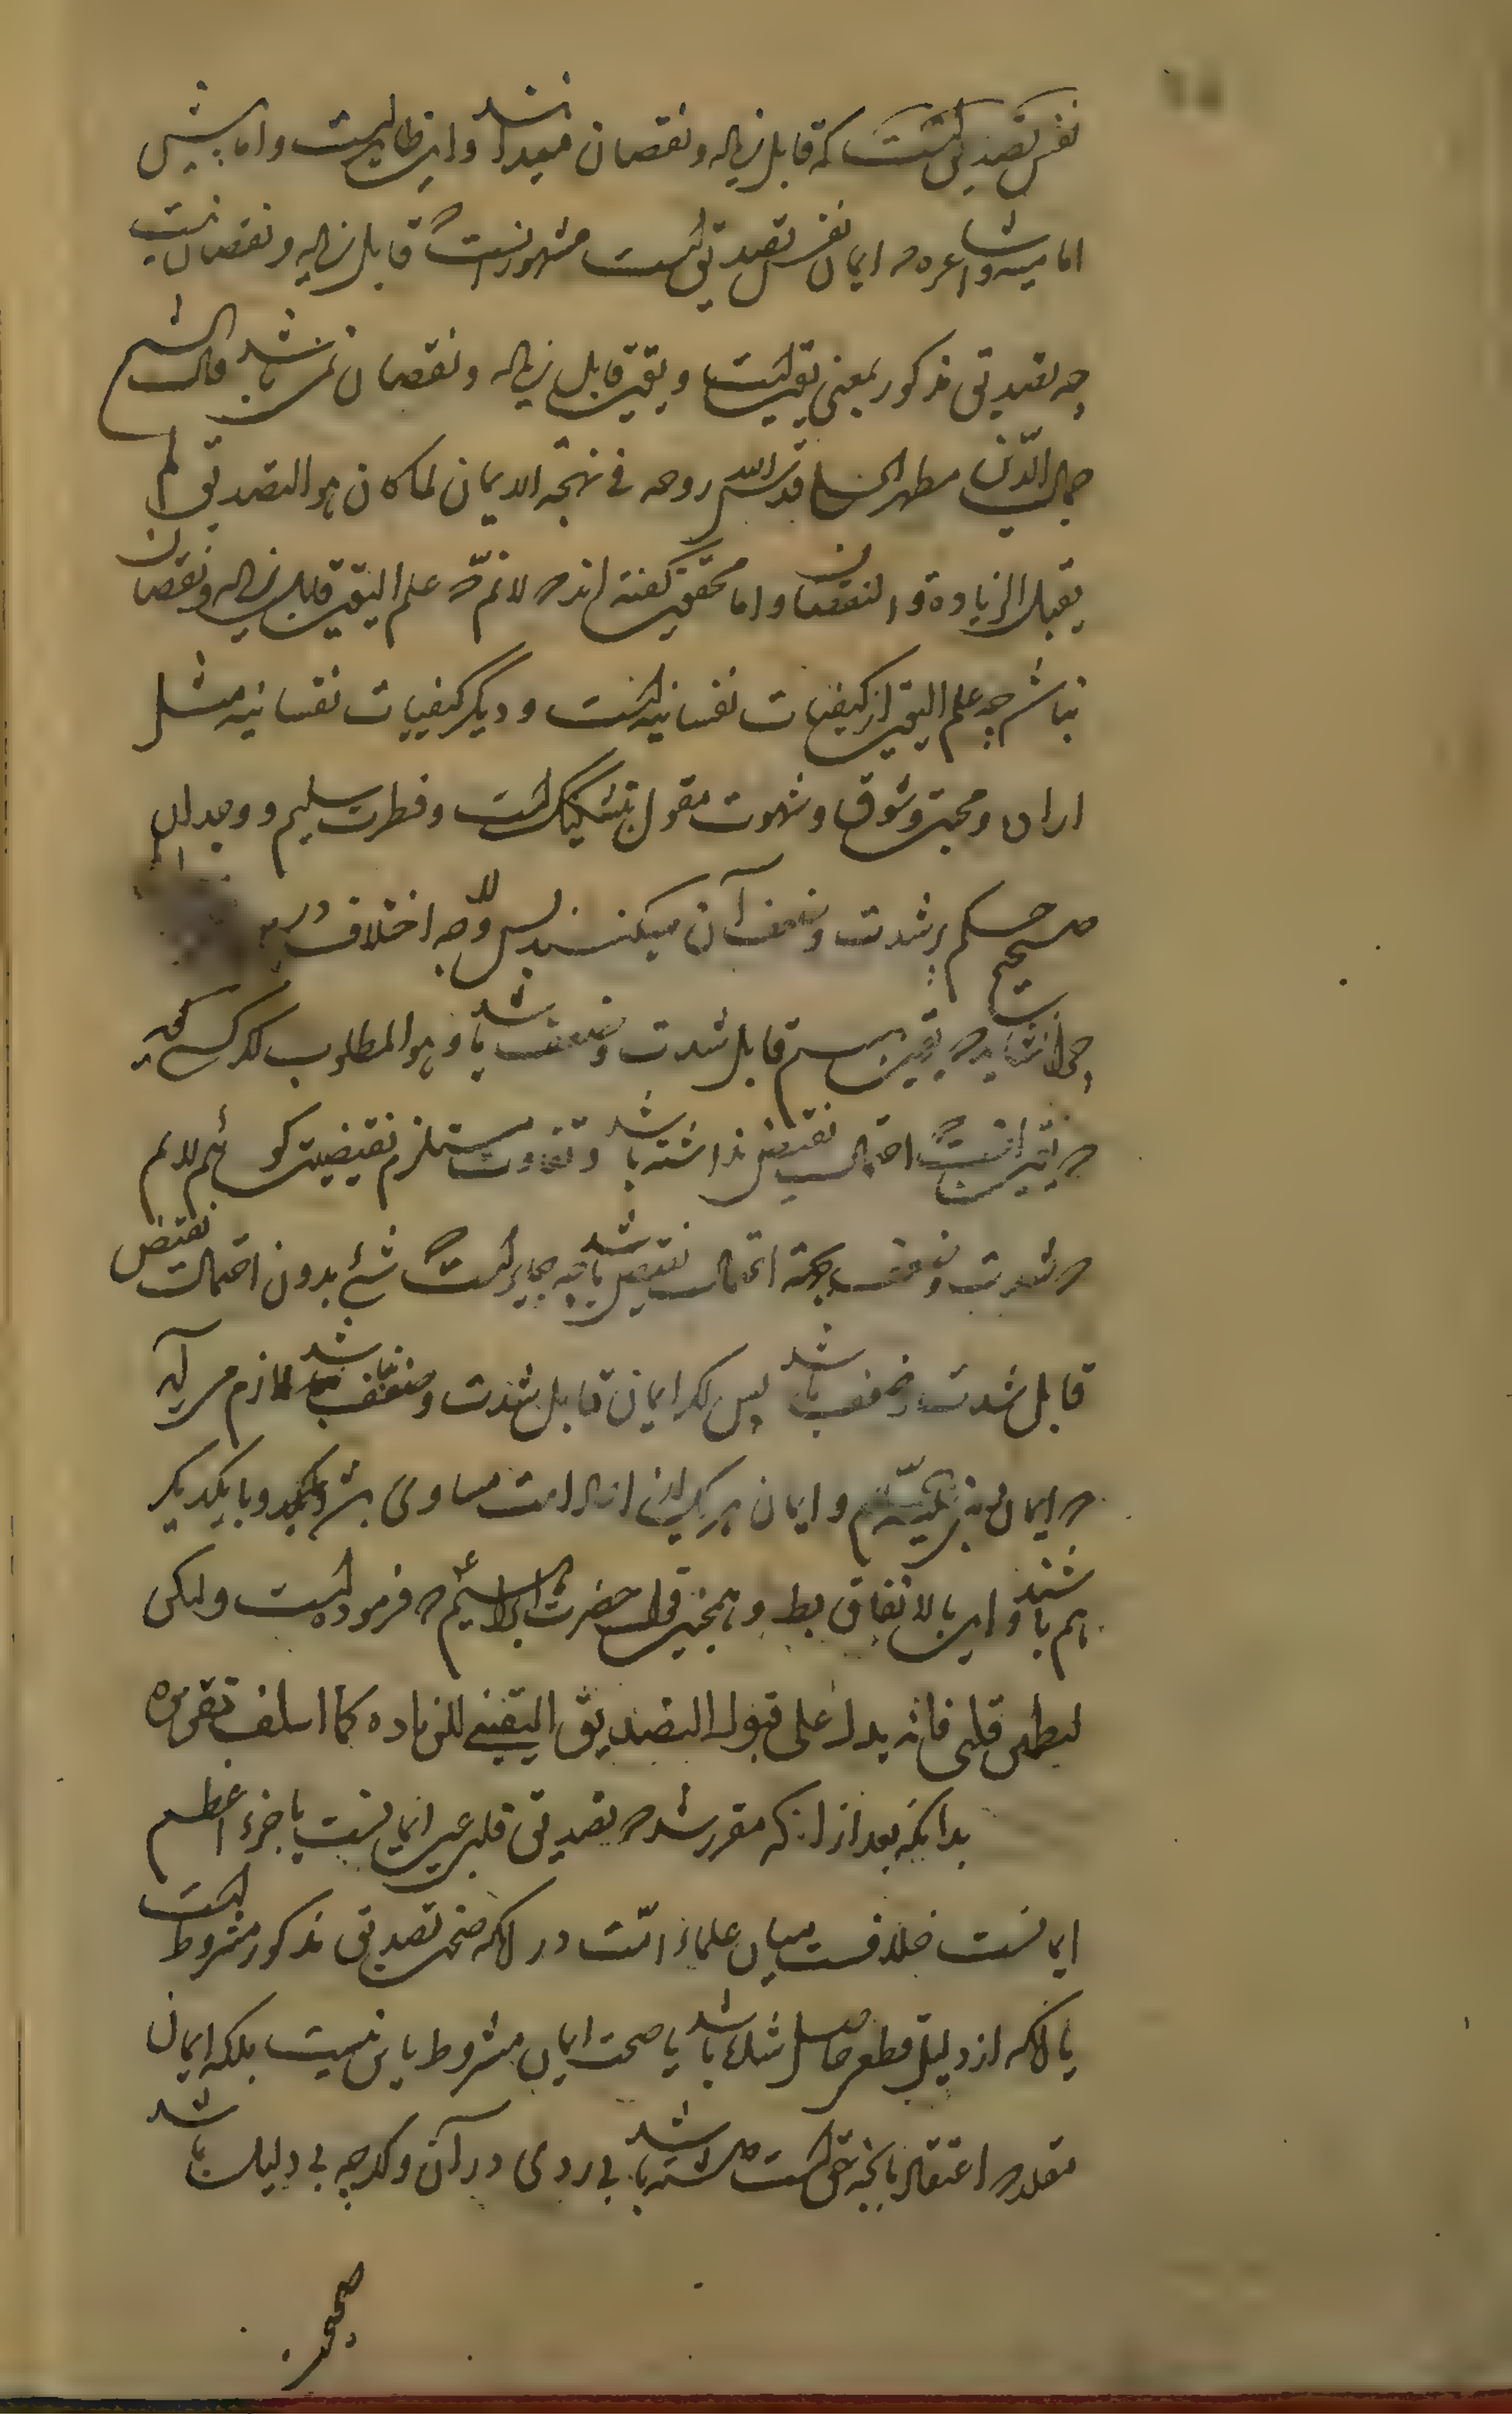 نفس تصدیقست که قابل زیاده و نقصان میدانند و این ظاهرست و اما پیش
امامیه و اشاعره که ایمان نفس تصدیق است مشهور آنست که قابل زیاده و نقصان نیست
چه تصدیق مذکور بمعنی یقین است و یقین قابل زیاده و نقصان نمیباشد قال الشیخ
جمال الدین مطهر الحلی قدس الله روحه فی نهج الایمان لما کان هو التصدیق لم
یقبل الزیادة و النقصان و اما محققین گفته اند که لانم که علم الیقین قابل زیاده و نقصان
نباشد چه علم الیقین از کیفیات نفسانیه است و دیگر کیفیات نفسانیه مثل
اراده و محبت و شوق و شهوت مقول بتشکیک است و فطرت سلیم و وجدان
صحیح حکم بر شدت و ضعف آن میکنند پس وجه اختلاف در
چرا نشاید که یقین هم قابل شدت و ضعف باشد و هو المطلوب اگر کسی گوید
که یقین آنست که احتمال نقیض نداشته باشد و تفاوت مستلزم نقیضیت گوئیم لانم
که شدت و ضعف بجهة احتمال نقیض باشد چه جایز است که شئ بدون احتمال نقیض
قابل شدت و ضعف باشد پس اگر ایمان قابل شدت و ضعف نباشد لازم می آید
که ایمان و ایمان هر یک از امت مساوی با یکدیگر
هم باشند و این بالاتفاق بط و همچنین قول حضرت ابراهیم ع که فرموده است ولکن
لیطمئن قلبی فانه یدل علی قبول التصدیق الیقینی للزیاده کما اسلف تقریره
بدانکه بعد از آنکه مقرر شد که تصدیق قلبی عین ایمانست یا جزء اعظم
ایمانست خلافست میان علماء امت در آنکه صحت تصدیق مذکور مشروط است
بآنکه از دلیل قطعی حاصل شده باشد یا صحت ایمان مشروط باین نیست بلکه ایمان
مقلد که اعتقاد بآنچه حق است داشته باشد بی ردی در آن و اگرچه بی دلیل باشد
صحیح